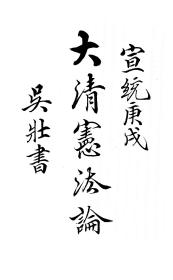 宣統庚戌
大清憲法論
吳壯書